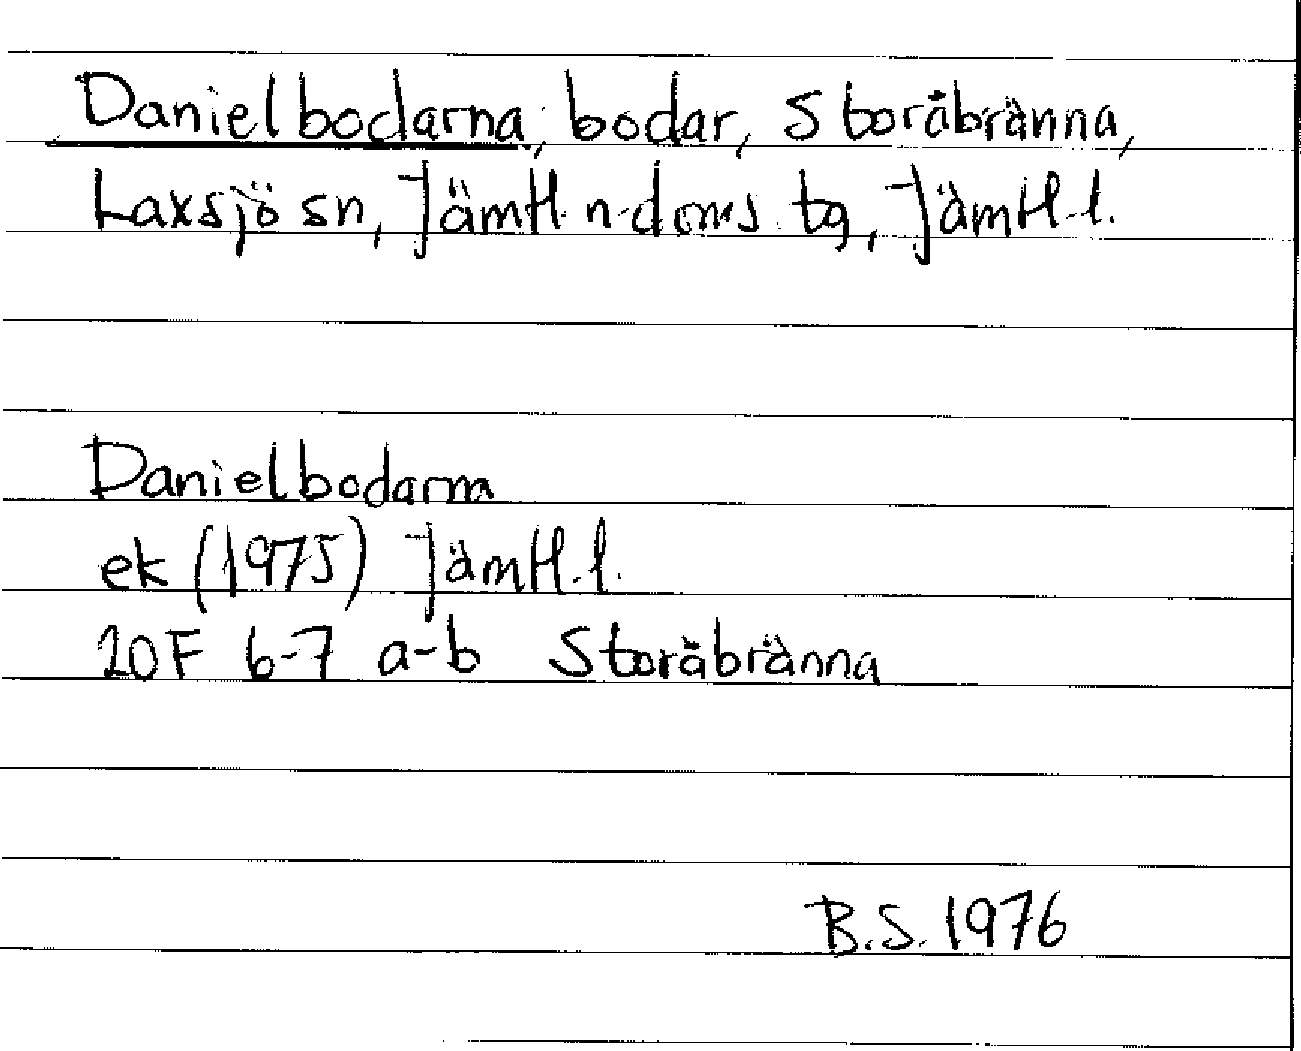 Danielbodarna, bodar, Storåbränna,
Laxsjö sn, Jämtl. n. doms. tg, Jämtl. l.
Danielbodarna
ek (1975) Jämtl. l.
20F 6-7 a-b Storåbränna
B.S. 1976